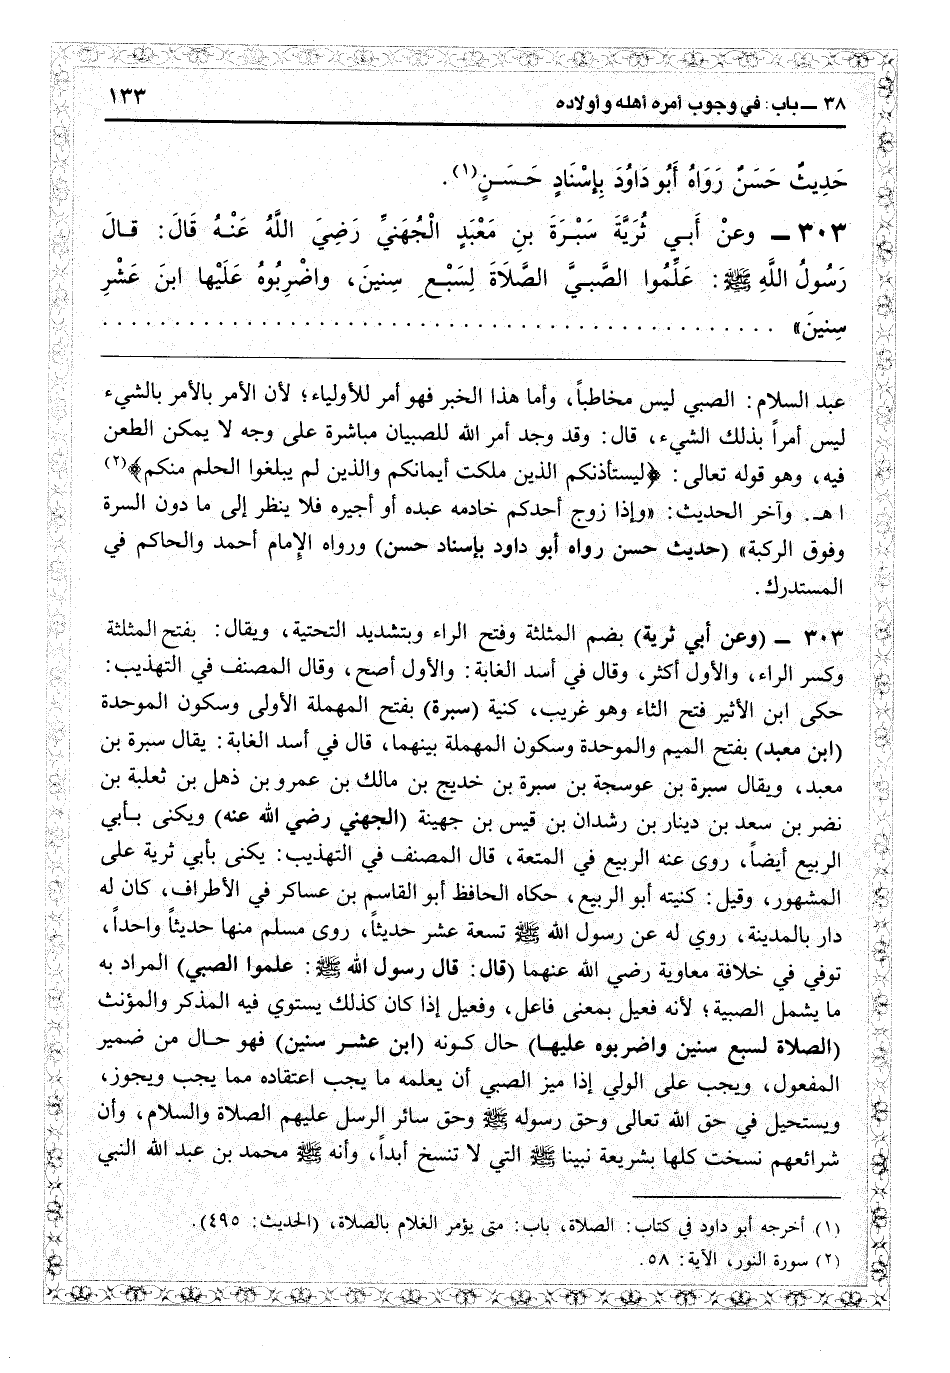 ٣٨ ــ باب: في وجوب أمره أهله وأولاده ١٣٣
حَدِيثٌ حَسَنٌ رَوَاهُ أَبُو دَاوُدَ بِإِسْنَادٍ حَسَـنٍ(١).
٣٠٣ ــ وعنْ أَبـي ثُرَيَّةَ سَبْـرَةَ بنِ مَعْبَدٍ الْجُهَنِيِّ رَضِيَ اللَّهُ عَنْـهُ قَالَ: قـالَ
رَسُولُ اللَّهِ ﷺ: عَلِّمُوا الصَّبـيَّ الصَّلَاةَ لِسَبْـعِ سِنينَ، واضْرِبُوهُ عَلَيْها ابنَ عَشْرِ
سِنينَ» ...........................................
عبد السلام: الصبي ليس مخاطباً، وأما هذا الخبر فهو أمر للأولياء؛ لأن الأمر بالأمر بالشيء
ليس أمراً بذلك الشيء، قال: وقد وجد أمر الله للصبيان مباشرة على وجه لا يمكن الطعن
فيه، وهو قوله تعالى: ﴿ليستأذنكم الذين ملكت أيمانكم والذين لم يبلغوا الحلم منكم﴾(٢)
اهـ. وآخر الحديث: «وإذا زوج أحدكم خادمه عبده أو أجيره فلا ينظر إلى ما دون السرة
وفوق الركبة» (حديث حسن رواه أبو داود بإسناد حسن) ورواه الإمام أحمد والحاكم في
المستدرك.
٣٠٣ ــ (وعن أبي ثرية) بضم المثلثة وفتح الراء وبتشديد التحتية، ويقال: بفتح المثلثة
وكسر الراء، والأول أكثر، وقال في أسد الغابة: والأول أصح، وقال المصنف في التهذيب:
حكى ابن الأثير فتح الثاء وهو غريب، كنية (سبرة) بفتح المهملة الأولى وسكون الموحدة
(ابن معبد) بفتح الميم والموحدة وسكون المهملة بينهما، قال في أسد الغابة: يقال سبرة بن
معبد، ويقال سبرة بن عوسجة بن سبرة بن خديج بن مالك بن عمرو بن ذهل بن ثعلبة بن
نضر بن سعد بن دينار بن رشدان بن قيس بن جهينة (الجهني رضي الله عنه) ويكنى بـأبي
الربيع أيضاً، روى عنه الربيع في المتعة، قال المصنف في التهذيب: يكنى بأبي ثرية على
المشهور، وقيل: كنيته أبو الربيع، حكاه الحافظ أبو القاسم بن عساكر في الأطراف، كان له
دار بالمدينة، روي له عن رسول الله ﷺ تسعة عشر حديثاً، روى مسلم منها حديثاً واحداً،
توفي في خلافة معاوية رضي الله عنهما (قال: قال رسول الله ﷺ: علموا الصبي) المراد به
ما يشمل الصبية؛ لأنه فعيل بمعنى فاعل، وفعيل إذا كان كذلك يستوي فيه المذكر والمؤنث
(الصلاة لسبع سنين واضربوه عليهـا) حال كـونه (ابن عشـر سنين) فهو حـال من ضمير
المفعول، ويجب على الولي إذا ميز الصبي أن يعلمه ما يجب اعتقاده مما يجب ويجوز،
ويستحيل في حق الله تعالى وحق رسوله ﷺ وحق سائر الرسل عليهم الصلاة والسلام، وأن
شرائعهم نسخت كلها بشريعة نبينا ﷺ التي لا تنسخ أبداً، وأنه ﷺ محمد بن عبد الله النبي
(١) أخرجه أبو داود في كتاب: الصلاة، باب: متى يؤمر الغلام بالصلاة، (الحديث: ٤٩٥).
(٢) سورة النور، الآية: ٥٨.